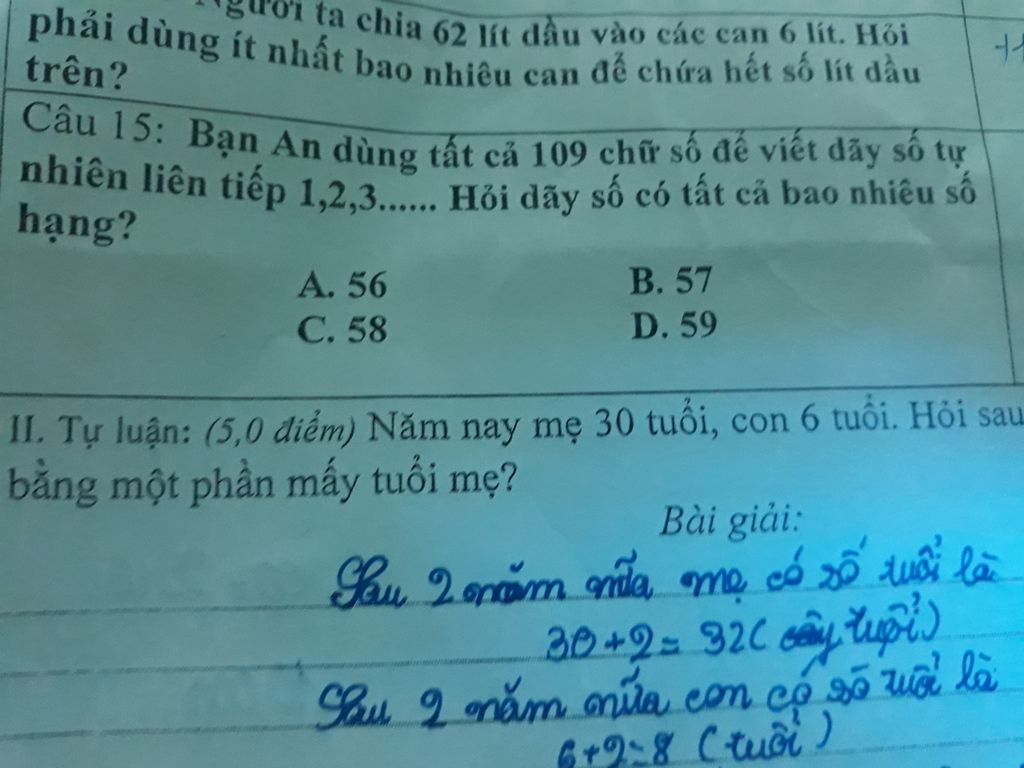 Người ta chia 62 lít dầu vào các can 6 lít. Hỏi
phải dùng ít nhất bao nhiêu can để chứa hết số lít dầu
trên?
Câu 15: Bạn An dùng tất cả 109 chữ số để viết dãy số tự
nhiên liên tiếp 1,2,3...... Hỏi dãy số có tất cả bao nhiêu số
hạng?
A. 56 B. 57
C. 58 D. 59
II. Tự luận: (5,0 điểm) Năm nay mẹ 30 tuổi, con 6 tuổi. Hỏi sau
bằng một phần mấy tuổi mẹ?
Bài giải:
Sau 2 năm nữa mẹ có số tuổi là
30+2=32( tuổi)
Sau 2 năm nữa con có số tuổi là
6+2=8 (tuổi)